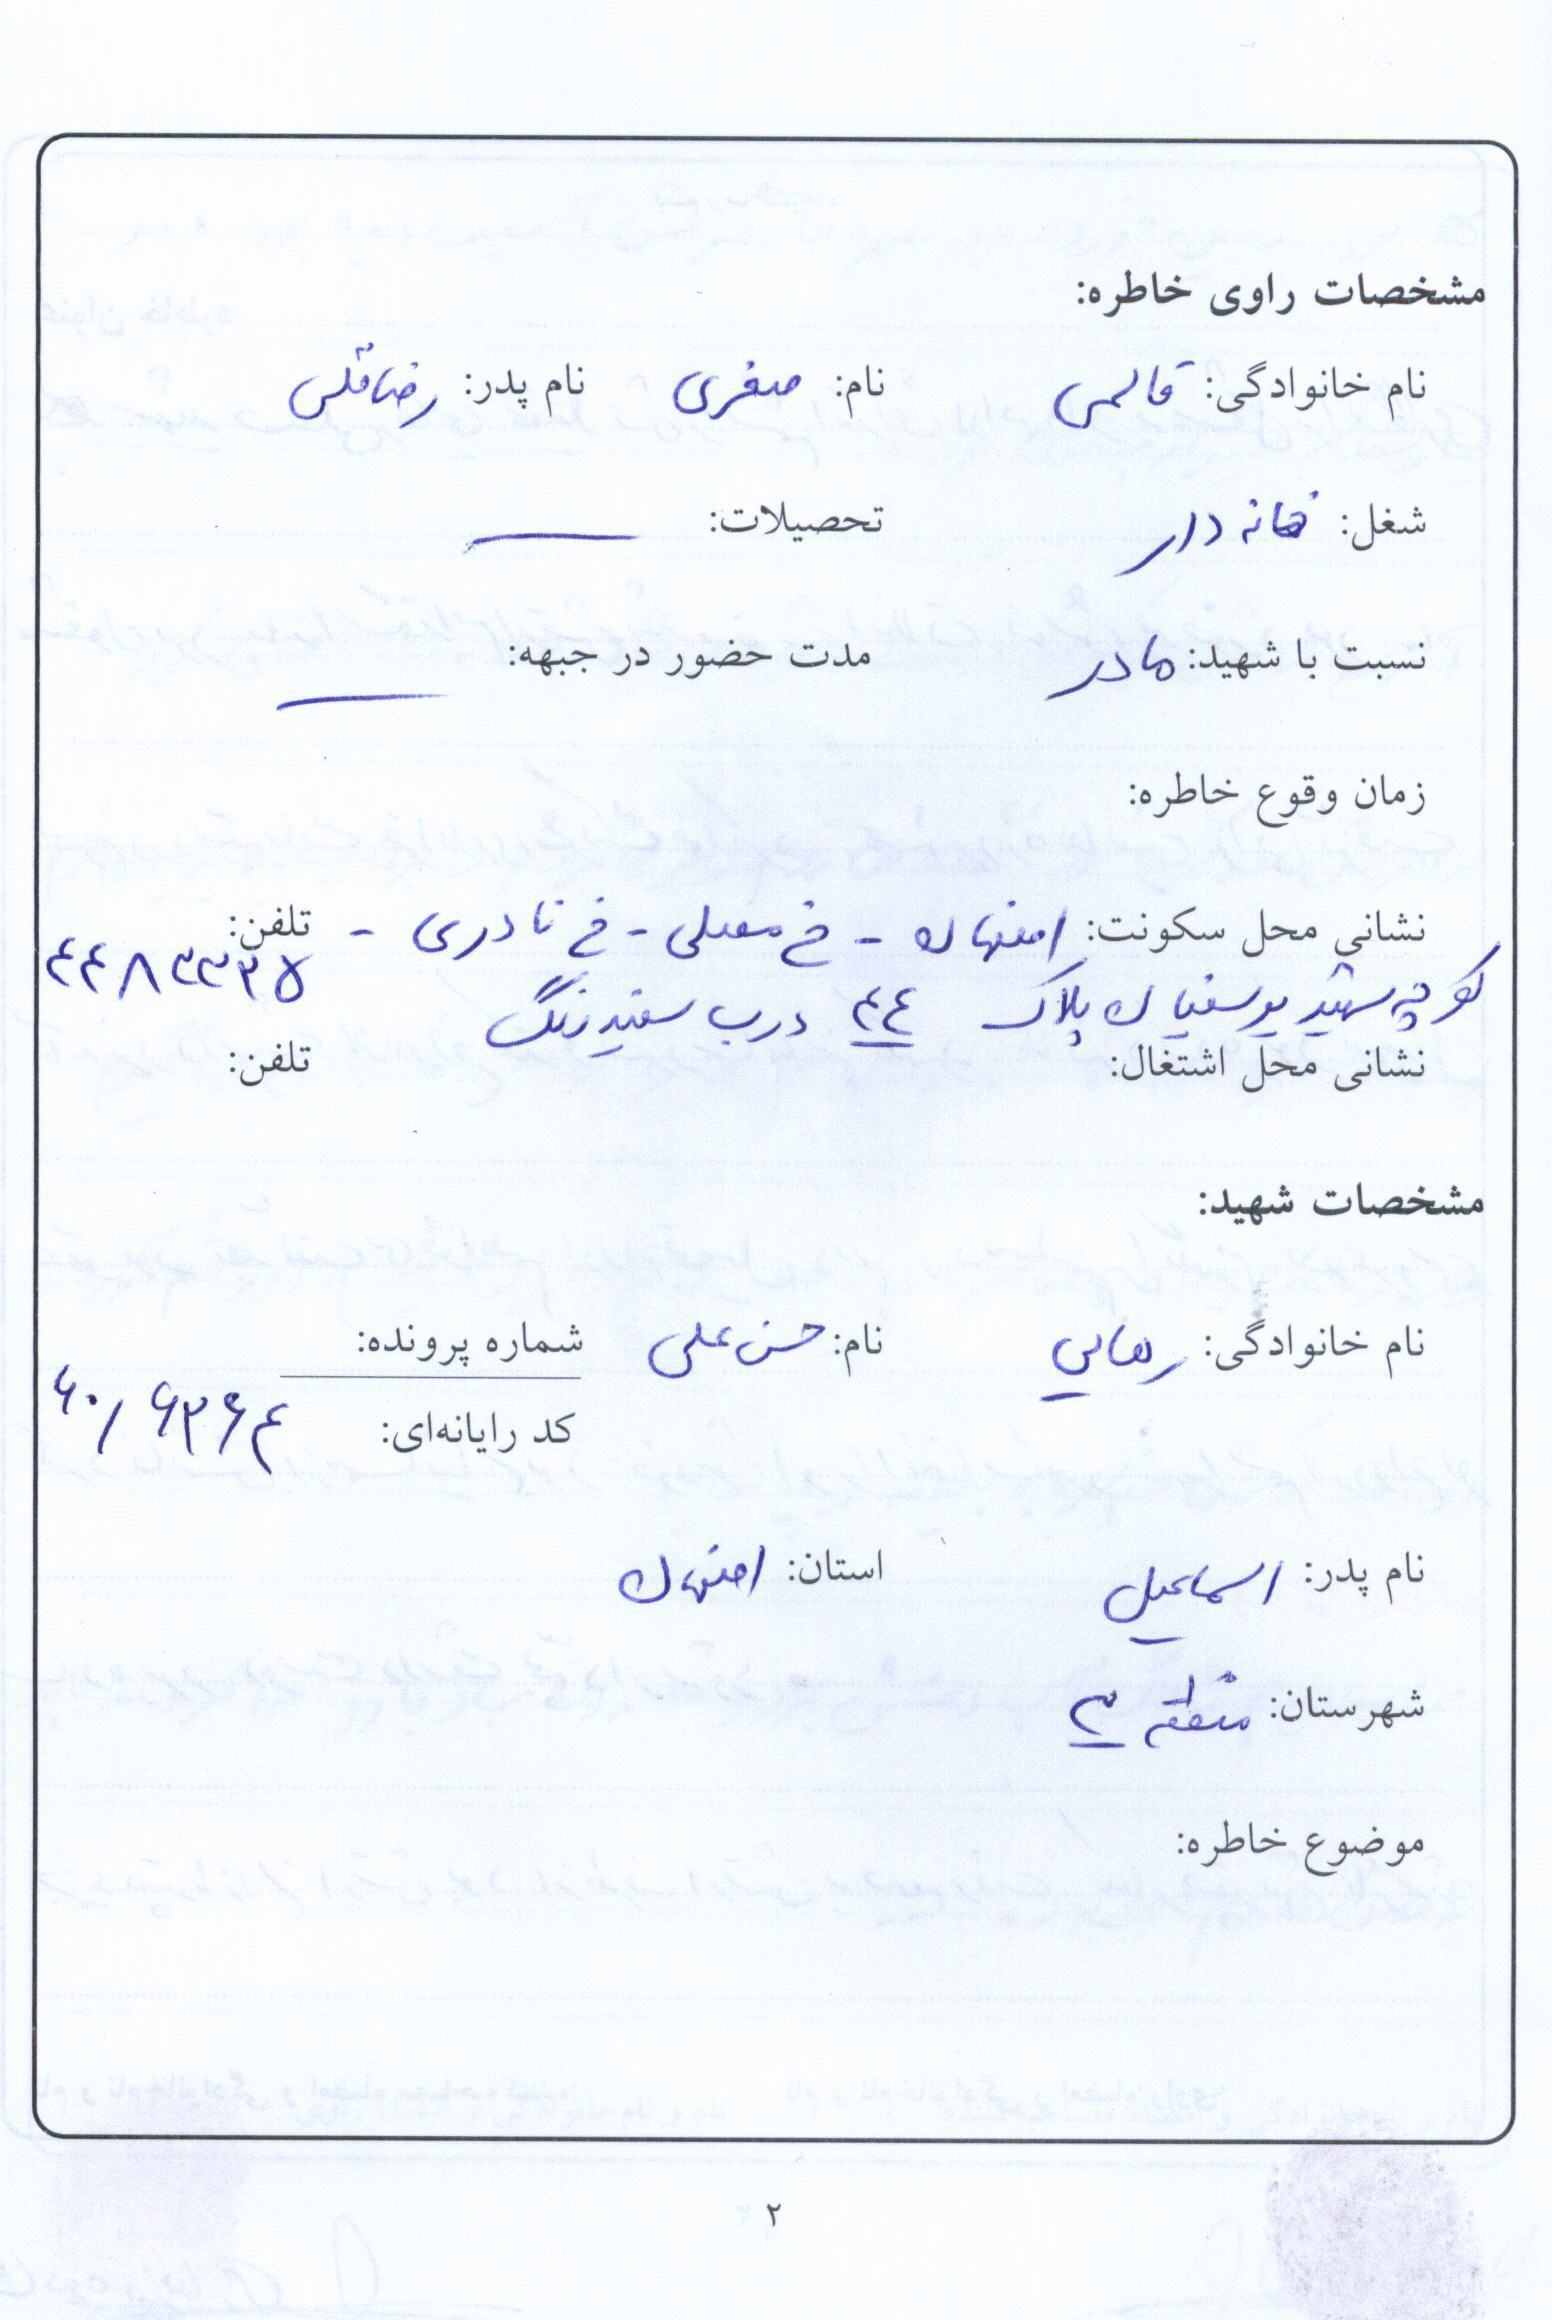 مشخصات راوی خاطره:
نام خانوادگی: قالمی نام: صغری نام پدر: رضاقلی
شغل: خانه دار تحصیلات: ــــ
نسبت با شهید: مادر مدت حضور در جبهه: ــــ
زمان وقوع خاطره:
نشانی محل سکونت: اصفهان - خ معلی - خ نادری - تلفن:
کوچه شهید یوسفیان پلاک ۴۴ درب سفید رنگ ۴۴۸۳۳۳۵
نشانی محل اشتغال: تلفن:
مشخصات شهید:
نام خانوادگی: رهایی نام: حسن علی شماره پرونده:
کد رایانه‌ای: ۶۰/۶۳۶۴
نام پدر: اسماعیل استان: اصفهان
شهرستان: منطقه ۳
موضوع خاطره:
۲